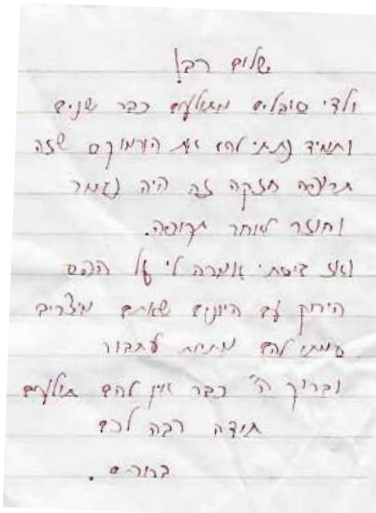 שלום רב!
ילדי סובלים מתולעים כבר שנים
ותמיד נתתי להם את הורמוקס שזה
תרופה חזקה זה היה נגמר
וחוזר לאחר תקופה.
ואז גיסתי אמרה לי על הפס
הירוק עם היונים שאתם מייצרים
שמתי להם מתחת לטבור
וברוך ה' כבר אין להם תולעים
תודה רבה לכם
ברוריה.